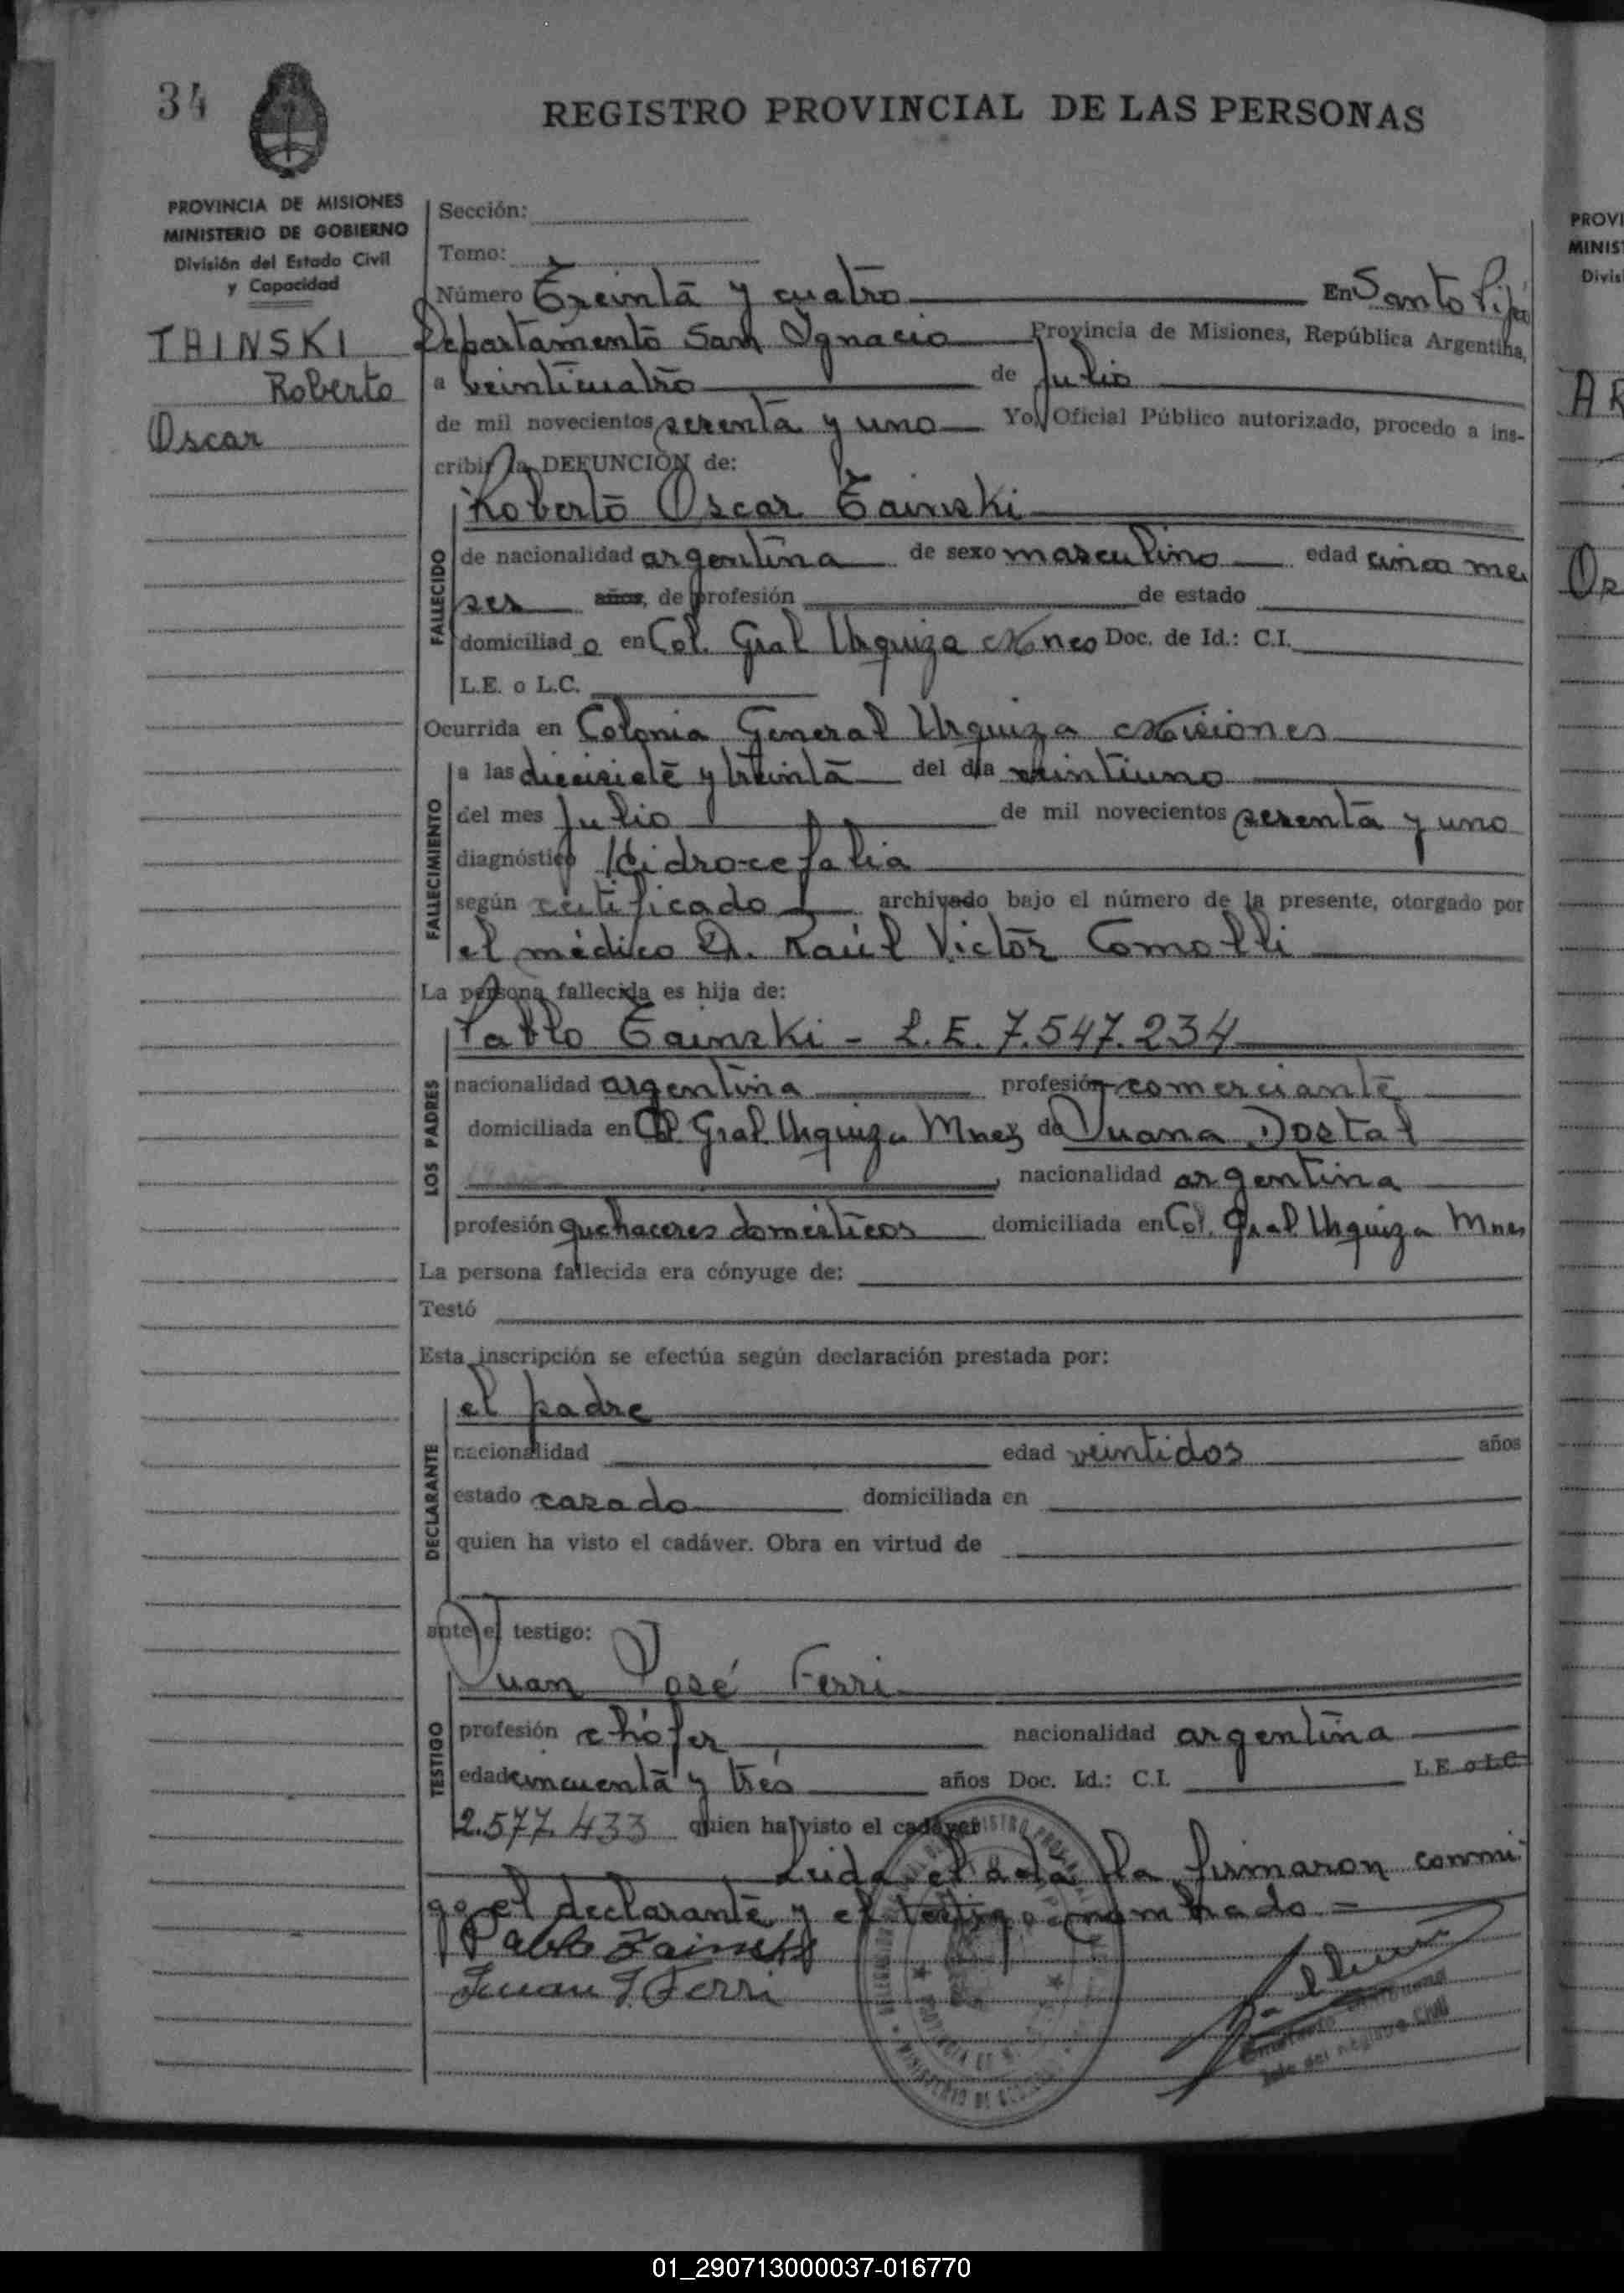 34
REGISTRO PROVINCIAL DE LAS PERSONAS
PROVINCIA DE MISIONES
MINISTERIO DE GOBIERNO
División del Estado Civil
y Capacidad
TAINSKI
Roberto
Oscar
Sección:
Tomo:
Número Treinta y cuatro En Santo Pipó
Departamento San Ignacio Provincia de Misiones, República Argentina,
a veinticuatro de Julio
de mil novecientos setenta y uno Yo, Oficial Público autorizado, procedo a ins-
cribir la DEFUNCIÓN de:
Roberto Oscar Tainski
FALLECIDO
de nacionalidad argentina de sexo masculino edad cinco me
ses años, de profesión de estado
domiciliad o en Col. Gral Urquiza Mnes Doc. de Id.: C.I.
L.E. o L.C.
Ocurrida en Colonia General Urquiza Misiones
FALLECIMIENTO
a las diecisiete y treinta del día veintiuno
del mes Julio de mil novecientos setenta y uno
diagnóstico Hidrocefalia
según certificado archivado bajo el número de la presente, otorgado por
el médico Dr. Raúl Victor Comolli
La persona fallecida es hija de:
LOS PADRES
Pablo Tainski - L.E. 7.547.234
nacionalidad argentina profesión comerciante
domiciliada en Col. Gral Urquiza Mnes de Juana Dostal
, nacionalidad argentina
profesión quehaceres domésticos domiciliada en Col. Gral Urquiza Mnes
La persona fallecida era cónyuge de:
Testó
Esta inscripción se efectúa según declaración prestada por:
DECLARANTE
el padre
nacionalidad edad veintidos años
estado casado domiciliada en
quien ha visto el cadáver. Obra en virtud de
ante el testigo:
TESTIGO
Juan José Ferri
profesión chófer nacionalidad argentina
edad cincuenta y tres años Doc. Id.: C.I. L.E. o L.C.
2.577.433 quien ha visto el cadáver
Leida el acta la firmaron conmi
go el declarante y el testigo nombrado =
Pablo Tainski
Juan J. Ferri
PROVI
MINIS
Divis
01_290713000037-016770